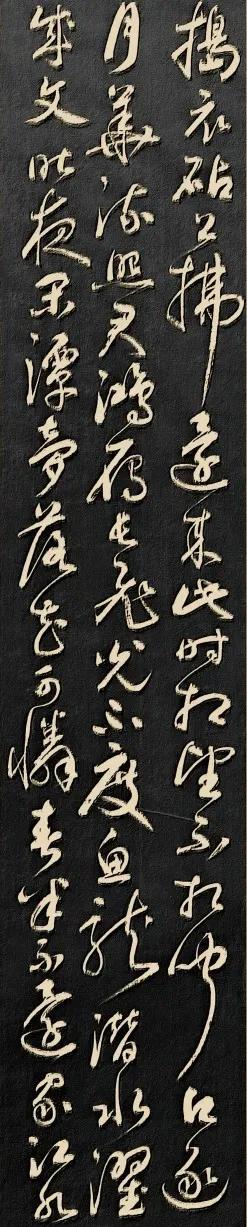 搗衣砧上拂還來此時相望不相聞逐
月華流照君鴻雁長飛光不度魚龍潛水躍
成文昨夜閑潭夢落花可憐春半不還家江水